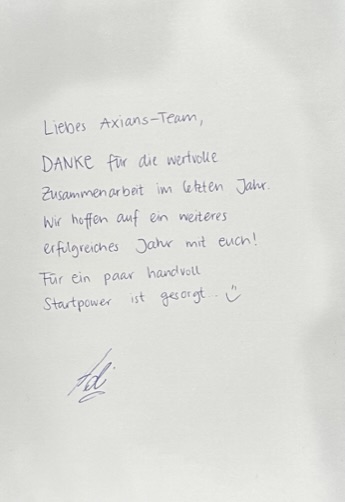 Liebes Axians-Team,
DANKE für die wertvolle
Zusammenarbeit im letzten Jahr.
Wir hoffen auf ein weiteres
erfolgreiches Jahr mit euch!
Für ein paar handvoll
Startpower ist gesorgt...